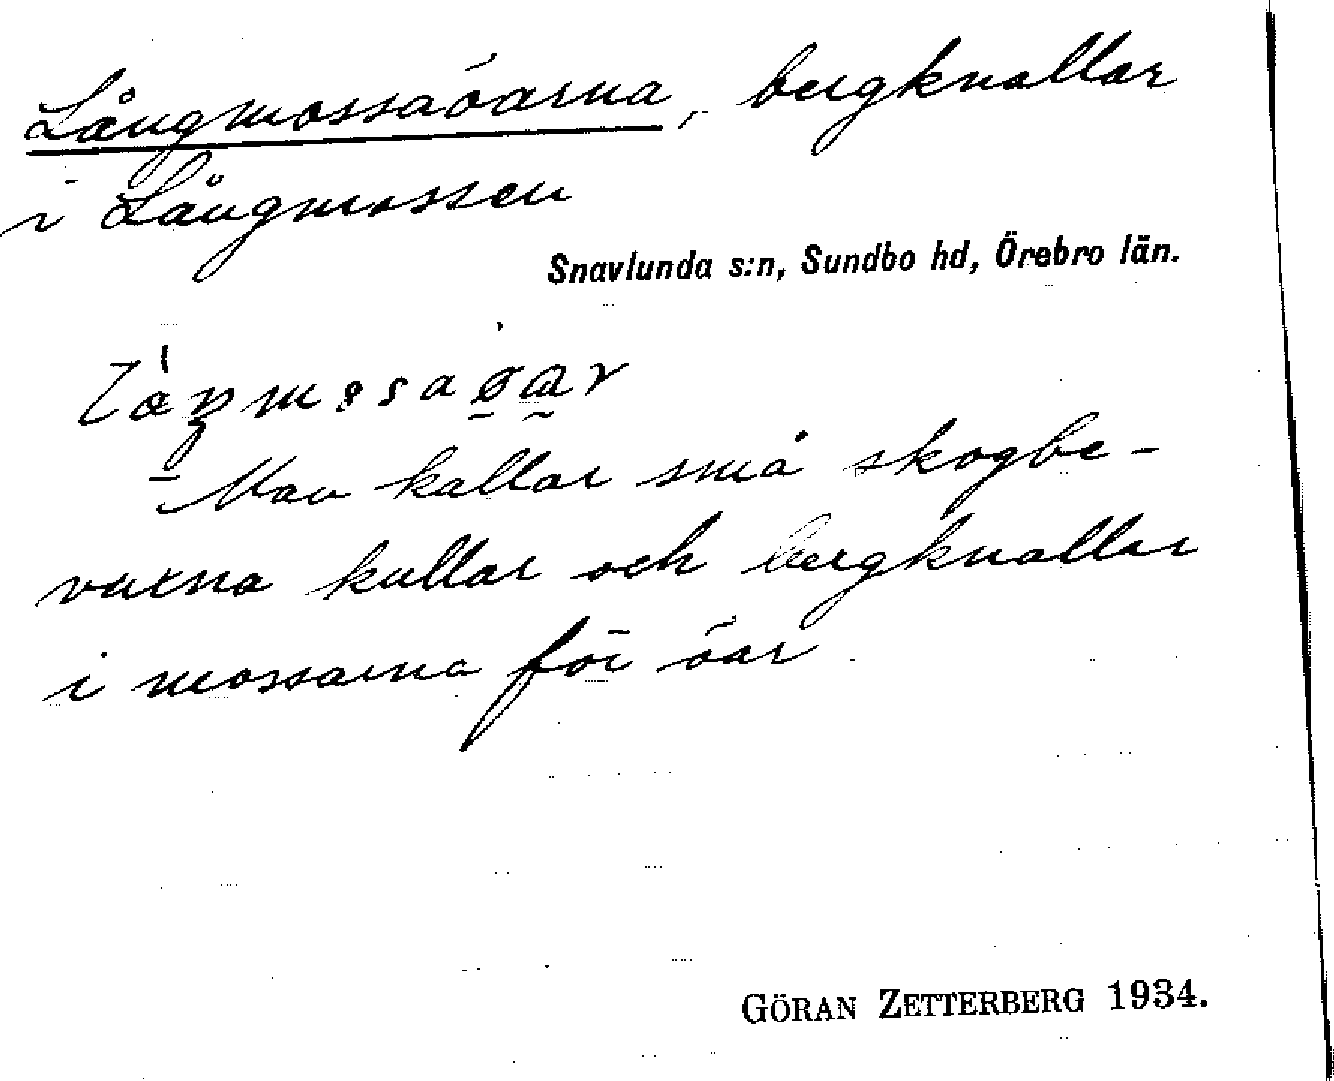 Långmossaöarna, bergknallar
i Långmossen
Snavlunda s:n, Sundbo hd, Örebro län.
Man kallar små skogbe-
vuxna kullar och bergknallar
i mossarna för öar
GÖRAN ZETTERBERG 1934.